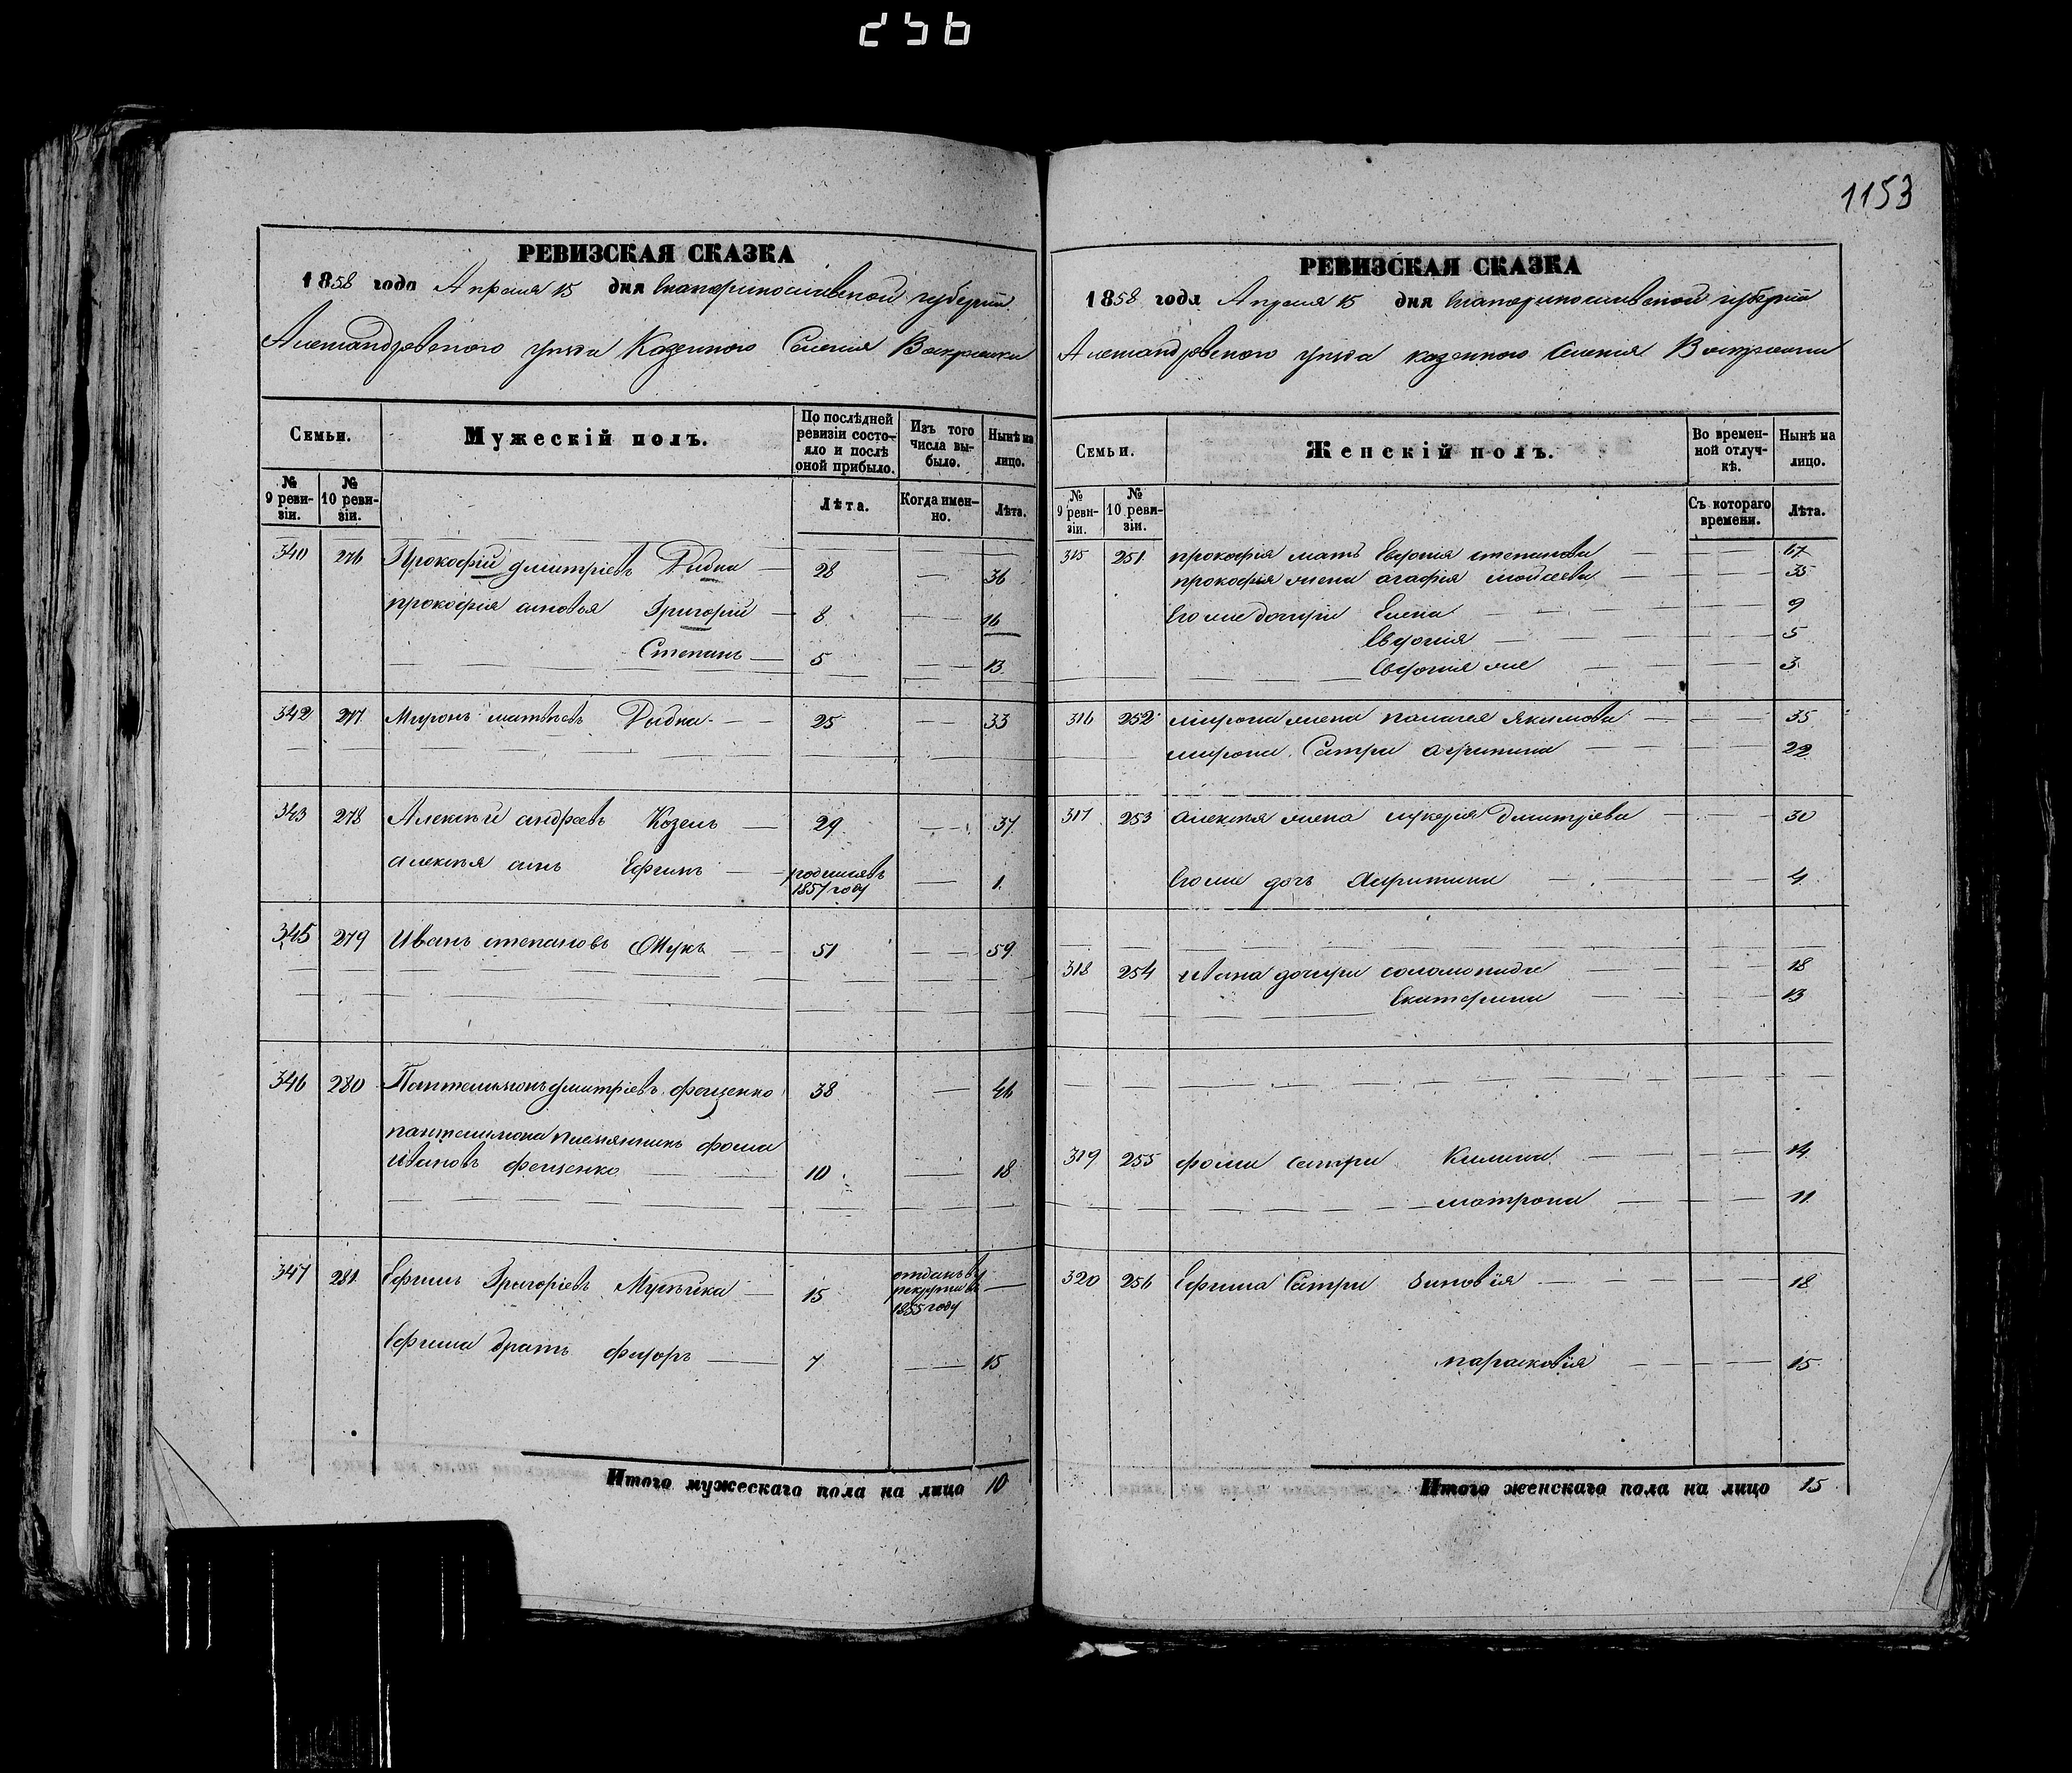 256
1153
РЕВИЗСКАЯ СКАЗКА
1858 года Апреля 15 дня Екатеринославской губернии
Александровского уѣзда Казенного Селенія Воскресенки
Семьи.
Мужескій полъ.
По послѣдней ревизіи состояло и послѣ оной прибыло.
Изъ того числа выбыло.
Нынѣ на лицо.
№ 9 ревизіи.
№ 10 ревизіи.
Лѣта.
Когда именно.
Лѣта.
340 276 Прокофій дмитріевъ Дыбка 28 — 36
прокофія сыновья Григорій 8 — 16
Степанъ 5 — 13
342 277 Миронъ матвѣевъ Дыбка 25 33
343 278 Алексѣй андреевъ Козелъ — 29 — 37
алексѣя сынъ Ефимъ — родился въ 1857 году — 1
345 279 Иванъ степановъ Жукъ 51 — 59
346 280 Пантелимонъ дмитріевъ фещенко 38 — 46
пантелимона племянникъ фома
Ивановъ фещенко 10 18
347 281 Ефимъ Григоріевъ 15 отданъ в рекруты въ 1855 году —
Ефима братъ федоръ — 7 — 15
Итого мужескаго пола на лицо 10
РЕВИЗСКАЯ СКАЗКА
1858 года Апреля 15 дня Екатеринославской губерніи
Александровского уѣзда казенного Селенія Воскресенки
Семьи.
Женскій полъ.
Во временной отлучкѣ.
Нынѣ на лицо.
№ 9 ревизіи.
№ 10 ревизіи.
Съ котораго времени.
Лѣта.
315 251 прокофія мать Евдокія степанова — 67
прокофія жена агафія моисеева — 35
его же дочери Елена 9
Евдокія 5
Евдокія же 3
316 252 мирона жена палагея Якимова 35
мирона Сестра афимия 22
317 253 алексѣя жена лукерія Дмитріева 30
его же дочь 4
318 254 ивана дочери соломонида 18
Екатерина 13
319 255 фомы сестры 14
матрона 11
320 256 Ефима Сестры Зиновія 18
парасковія 15
Итого женскаго пола на лицо 15